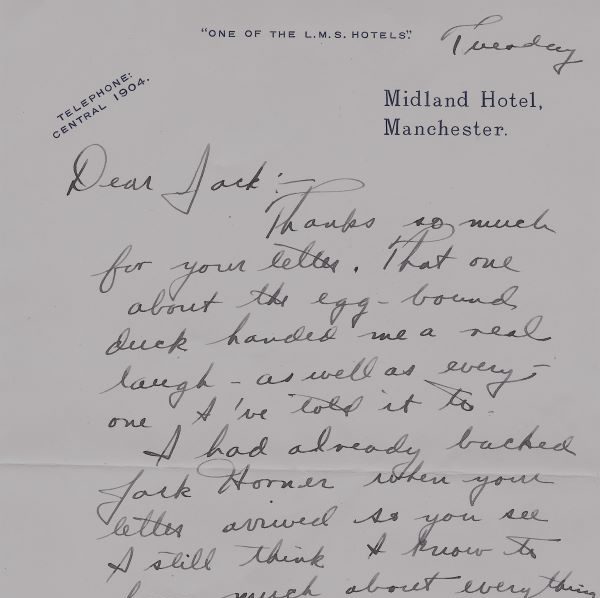 "ONE OF THE L.M.S. HOTELS".
Tuesday
TELEPHONE:
CENTRAL 1904.
Midland Hotel,
Manchester.
Dear Jack:—
Thanks so much
for your letter. That one
about the egg-bound
duck handed me a real
laugh - as well as every-
one I've told it to.
I had already backed
Jack Horner when your
letter arrived so you see
I still think I know to
much about everything